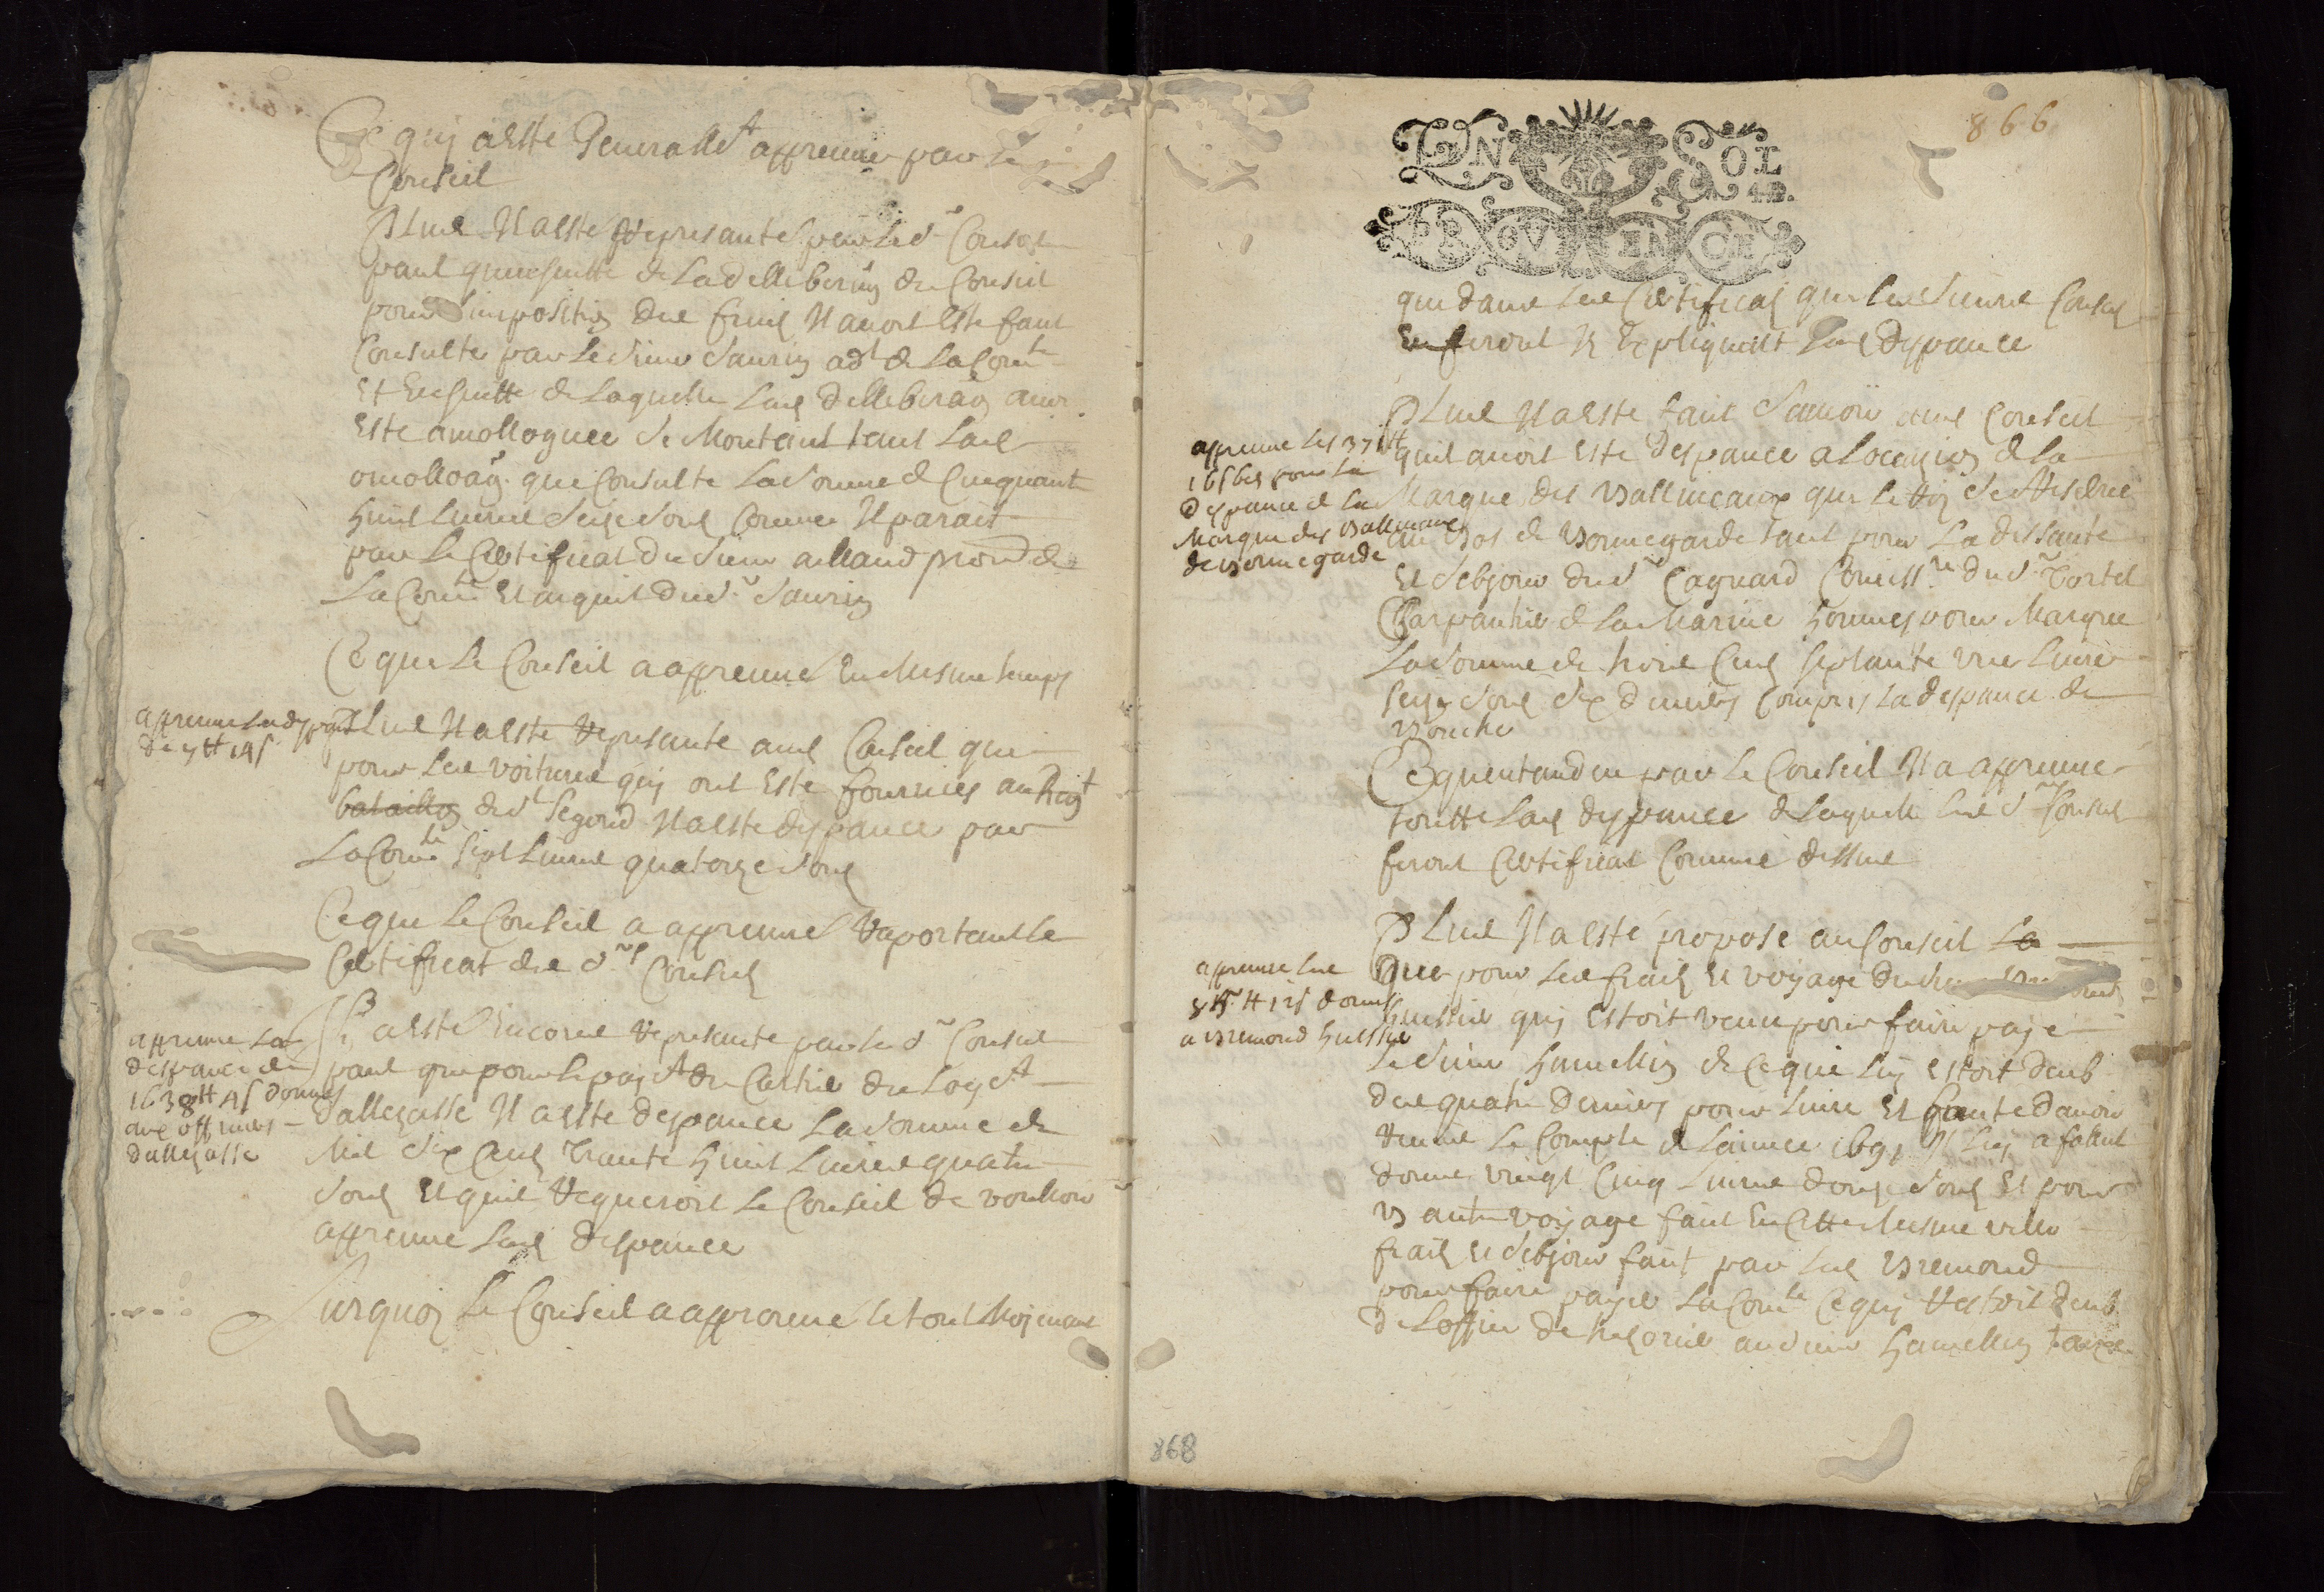 Ce quy a esté Generallemt appreuué par le
Conseil
Plus Il a esté Represanté par led sr Consul
pant que ensuitte de la delliberaõn du Conseil
pour l'imposition des fruis Il auoit esté fait
Consulte par le sieur Saurin adt de la Comte
Et Ensuitte de laquelle lad delliberaõn auoir
esté amollogueé se Montant tant lad
omolloaõn que Consulte la somme de Cinquante
huit liures seize sols Comme Il parait
par le Certificat du sieur aillaud de
la Comte et aquit dud sr Saurin
Ce que le Conseil a appreuué En Mesme temps
appreuue la despance
de 7 tt 14 s
Plus Il a esté Represanté aud Conseil que
pour les voitures quy ont esté fournies au Regt
bataillon du segond Il a esté despancé par
la Comte sept liures quatorze sols
Ce que le Conseil a appreuué Raportant le
Certificat des srs Consuls
appreuue la
despance de
1638 tt 4 s donnes
aux officiers
dallesasse
Il a esté Encores Represanté par led sr Consul
pant que pour le payemt du Cartier du logemt
dallezasse Il a esté despancé la somme de
Mil six Cens Trante huit liures quatre
sols Et quil Requeroit le Conseil de voulloir
appreuuer lad despance
Surquoy le Conseil a approuué le tout Moyenant
866
GEN SOL
4D.
PROVENCE
868
que dans les Certificas que lesd sieurs Consuls
En feront Ils Expliquent lad despance
appreuue les 371 tt
16 s 6 d pour la
Despance de la
Marque des Ballineaux
de Bormegarde
Plus Il a esté fait sauoir aud Conseil
quil auoit esté despancé a loccasion de la
Marque des Ballineaux que le Roy
au Bos de Bormegarde tant pour la dessante
Et sebjour dud sr Caguard Comissre dud sr Tortel
Charpantier de la Marine hommes pour Marquer
la somme de trois Cens septante vne liures
seize sols six deniers Compris la despance de
Bouche
Ce quentandeu par le Conseil Il a appreuué
toutte lad despance de laquelle lesd srs Consuls
feront Certificat Comme dessus
appreuue les
tt 12 s donnes
a Bremond hussier
Plus Il a esté proposé au Conseil la
que pour les frais et voyage du
hussier quy estoit venu pour faire payé
le sieur hamellin de Ce que luy estoit deub
des quatre deniers pour liure et faute dauoir
Rendu le Compte de lannee 1691 Il luy a fallut
donné vingt Cinq liures douze sols Et pour
autre voyage fait En Cette Mesme ville
frais et sebjour fait par led Bremond
pour faire payer la Comte Ce quy Restoit deub
de loffice de tresorier au sieur hamellin taxe